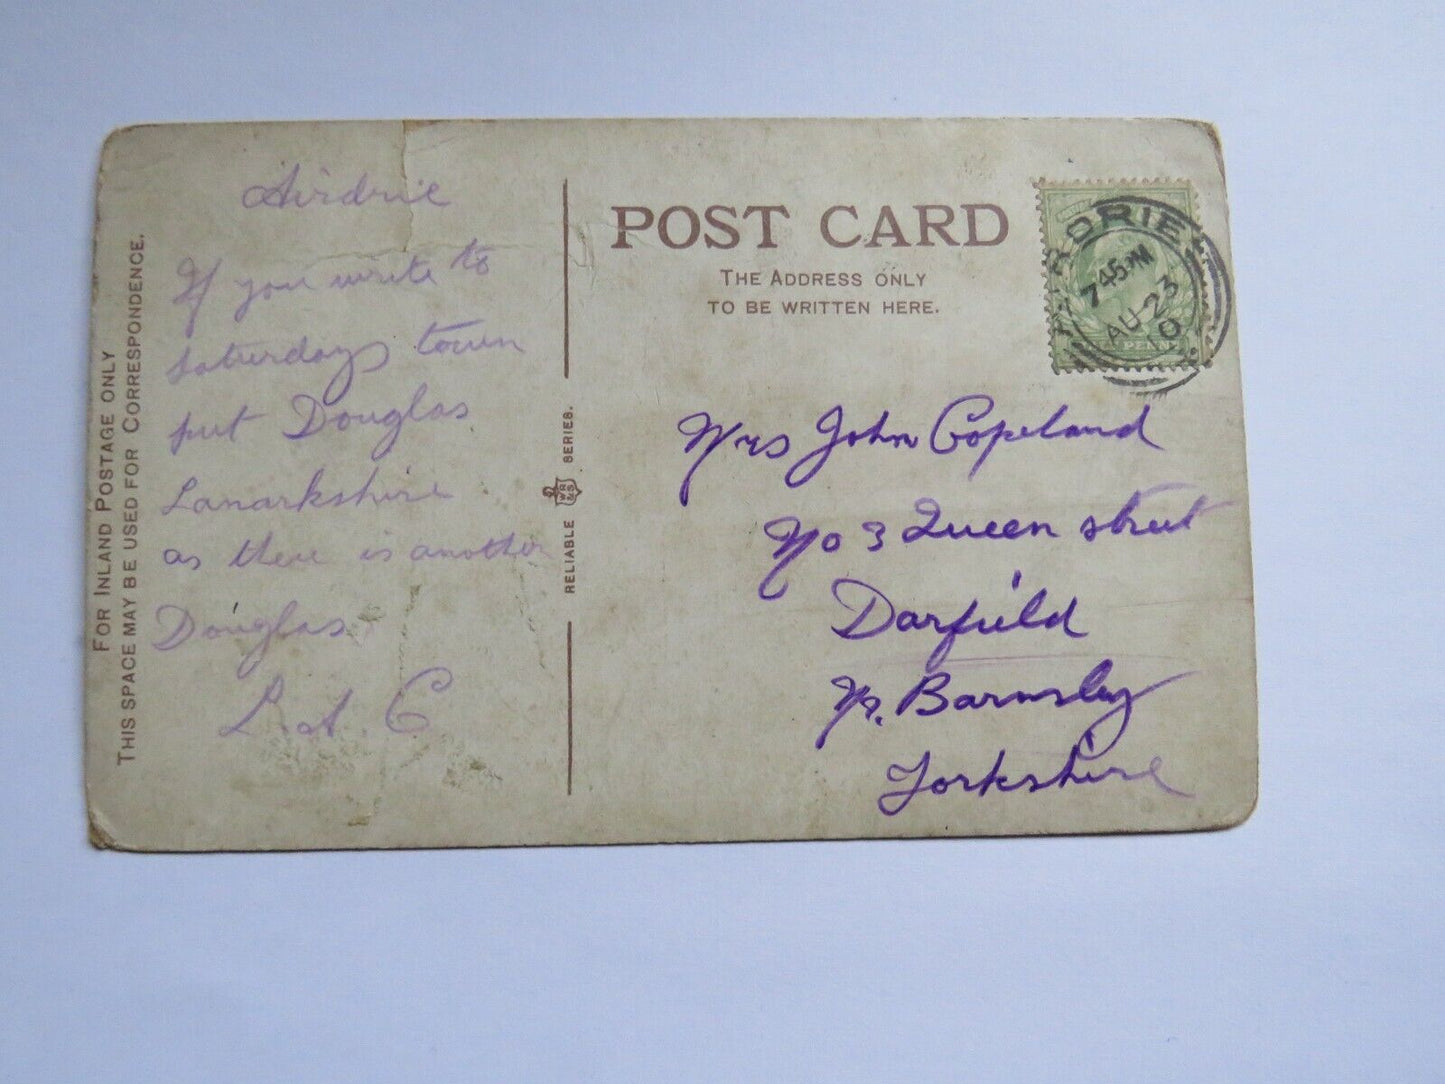 FOR INLAND POSTAGE ONLY
THIS SPACE MAY BE USED FOR CORRESPONDENCE.
Airdrie
If you write to
Saturdays town
put Douglas
Lanarkshire
as there is another
Douglas
L. A. C
RELIABLE WR&S SERIES.
POST CARD
THE ADDRESS ONLY
TO BE WRITTEN HERE.
AIRDRIE
7 45 PM
AU 23
10
Mrs John Copeland
No 3 Queen street
Darfield
Nr. Barnsley
Yorkshire